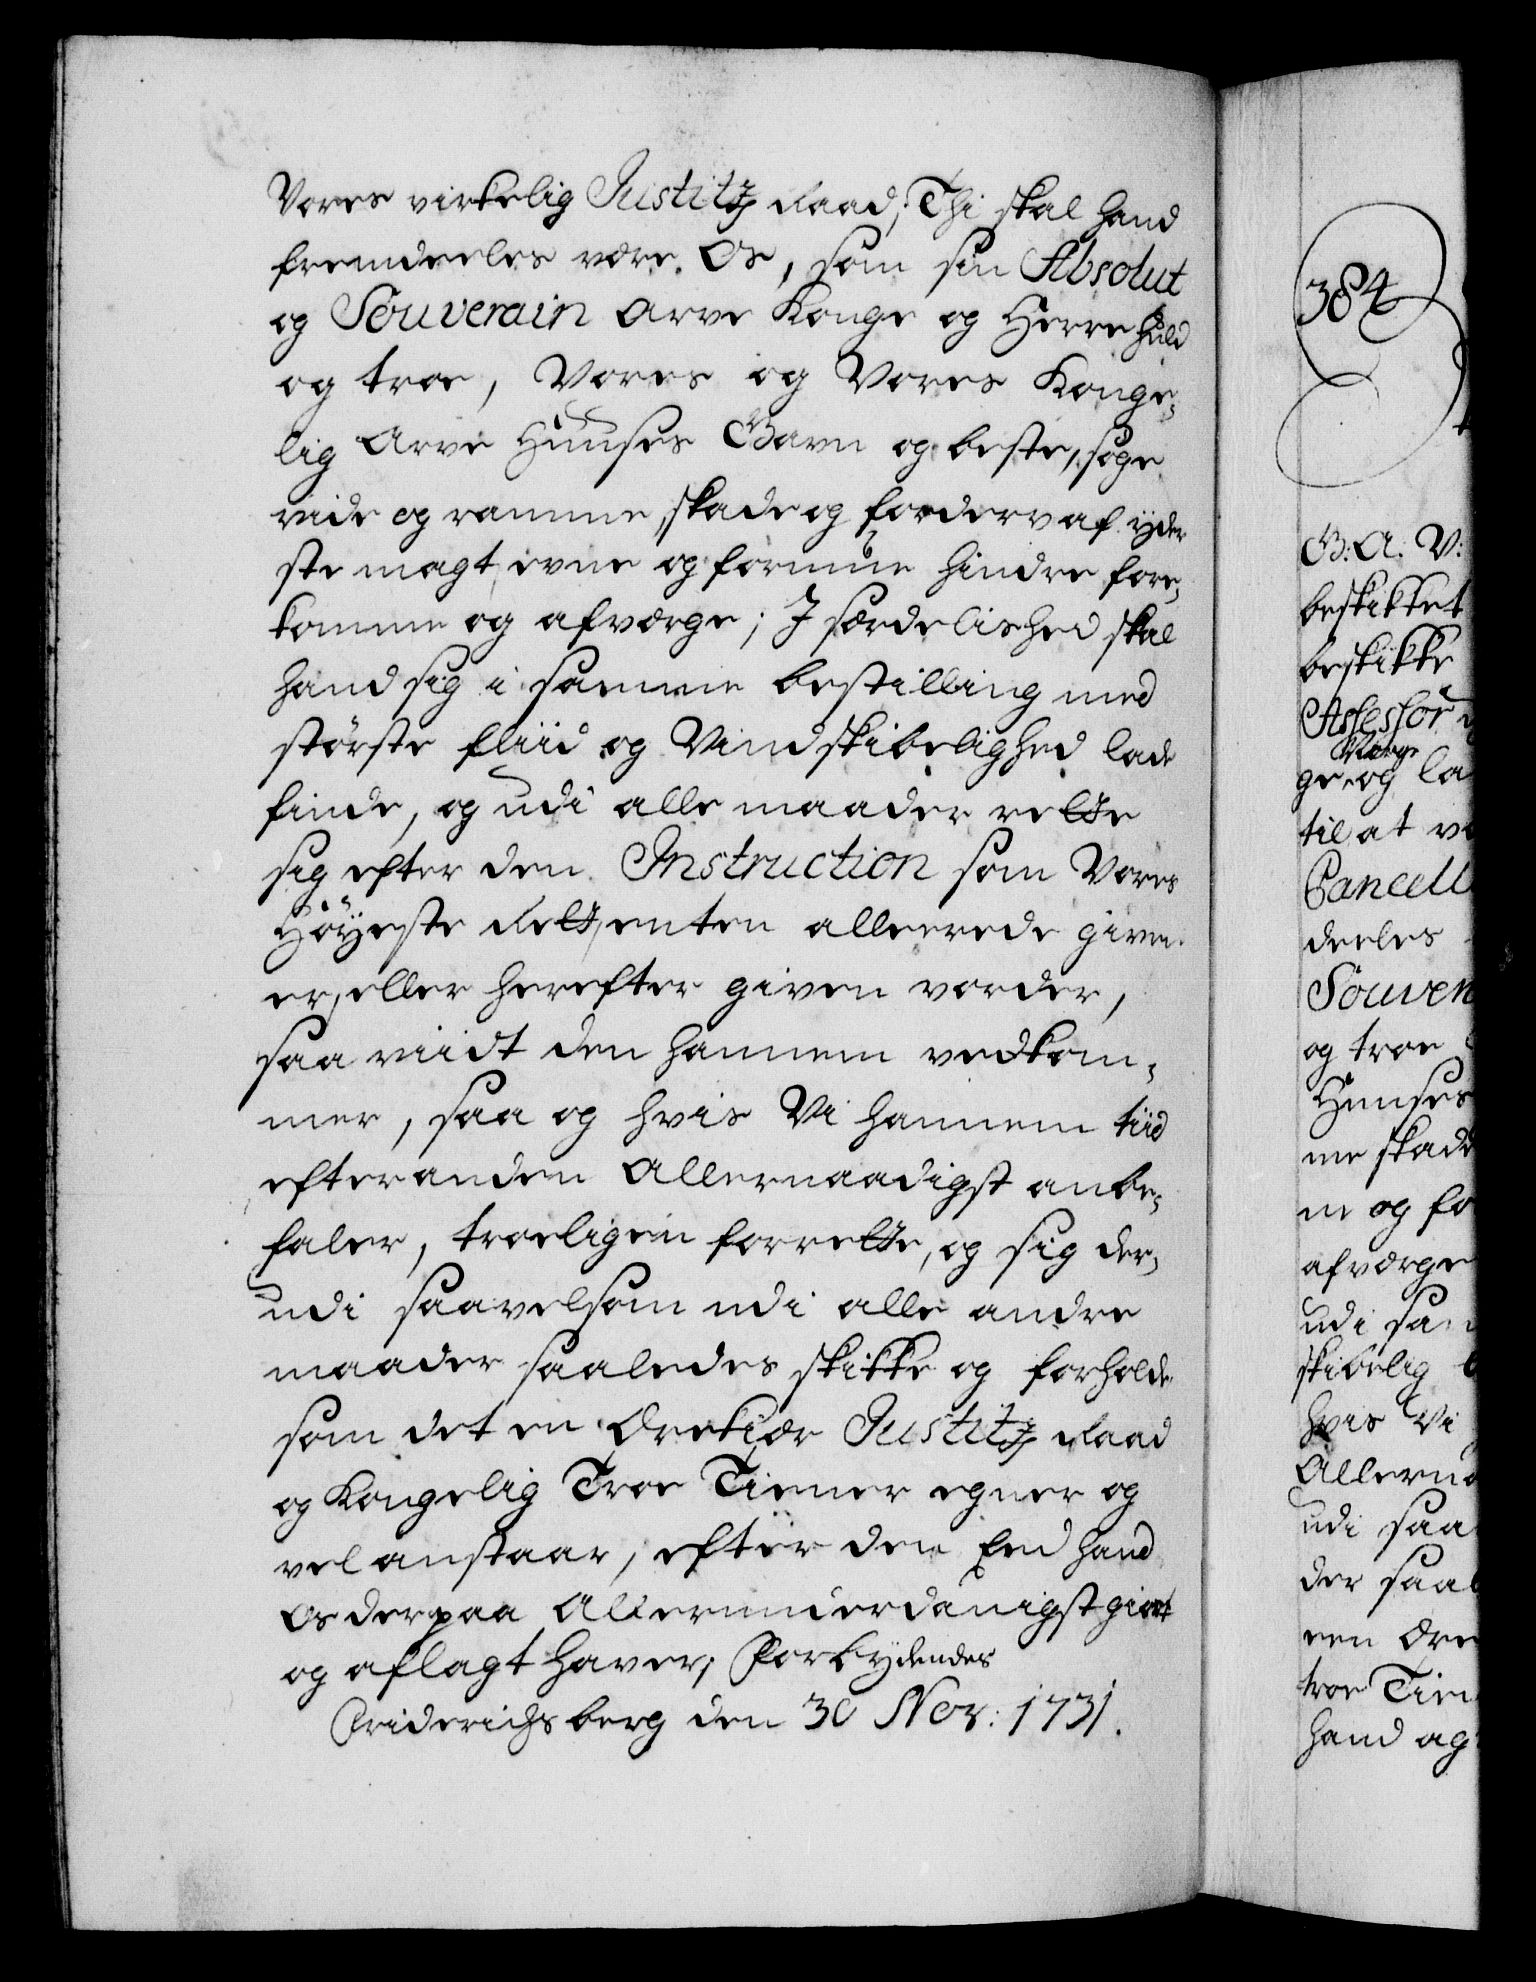 Vores virkelig Justitz Raad; Thi skal hand
fremdeeles være Os, som sin Absolut
og Souverain Arve Konge og Herre huld
og troe, Vores og Vores Konge-
lig Arve Huuses Gavn og beste, søge
vide og ramme, skade og forderv af yder
ste magt, evne og formue hindre, fore-
komme og afværge; I særdelished skal
hand sig i samme bestilling med
største fliid og Vindskibelighed lade
finde, og udi alle maader rette
sig efter den Instruction som Vores
Høyeste Rett, enten allereede given
er, eller herefter given vorder,
saa viidt den hannem vedkom-
mer, saa og hvis Vi hannem tiid
efter anden Allernaadigst anbe-
faler, troeligen forrette, og sig der-
udi saavelsom udi alle andre
maader saaledes skikke og forholde
som det en Ærekiær Justitz Raad
og Kongelig Troe Tiener egner og
vel anstaar, efter den Eed hand
Os derpaa Allerunderdanigst giort
og aflagt haver, Forbydendes
Friderichsberg den 30 Nov: 1731.
384
G: A: V:
beskikket
beskikke
Assessor
Norge
ge og la
til at væ
Cancell
deeles
Souver
og troe
Huuses
me skade
ne og fo
afværge
udi sam
skibelig
hvis Vi
Allerna
udi saa
der saal
een Ære
troe Tien
hand og